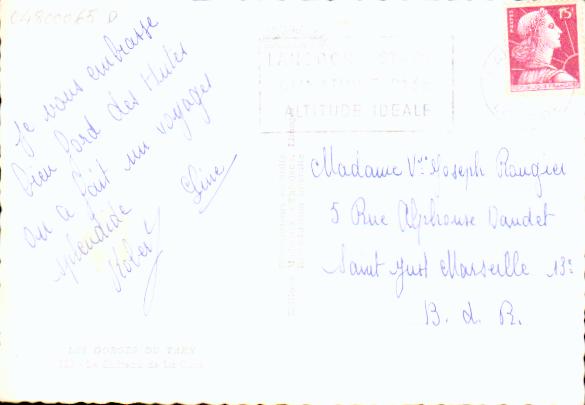 04800065 D
Je vous embrasse
bien ford des Hutes
on a fait un voyages
splendide
Line
Robert
POSTES
15F
ALTITUDE IDEALE
Madame Vve Joseph Rougier
5 Rue Alphonse Daudet
Saint Just Marseille 13e
B. d. R.
LES GORGES DU TARN
Le Château de La Caze